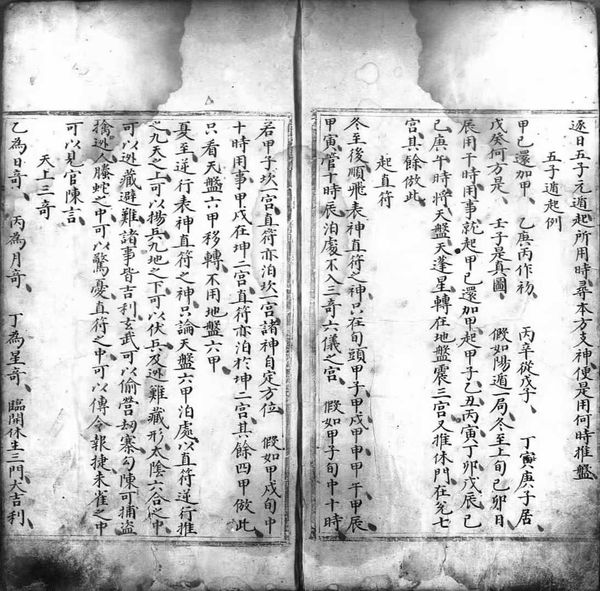 逐日五子元遁起所用時尋本方支神便是用何時推盤
五子遁起例
甲己還加甲　乙庚丙作初　丙辛從戊子　丁寅庚子居
戊癸何方是　壬子是真圖　假如陽遁一局冬至上旬己卯日
辰用干時用事就起甲己還加甲起甲子乙丑丙寅丁卯戊辰己
己庚午時將天盤天蓬星轉在地盤震三宮又推休門在兊七
宮其餘倣此
起直符
冬至後順飛表神直符之神只在旬頭甲子甲戌甲申甲午甲辰
甲寅管十時辰泊處不入三奇六儀之宮　假如甲子旬中十時
若甲子坎一宮直符亦泊坎一宮諸神自定方位　假如甲戌旬中
十時用事甲戌在坤二宮直符亦泊於坤二宮其餘四甲倣此
只看天盤六甲移轉不用地盤六甲
夏至逆行表神直符之神只論天盤六甲泊處以直符逆行推
之九天之上可以揚兵九地之下可以伏兵及逃難藏形太陰六合之中
可以逃藏避難諸事皆吉利玄武可以偷營刼寨勾陳可捕盜
擒逃人螣蛇之中可以驚憂直符之中可以傳令報捷朱雀之中
可以見官陳言
天上三奇
乙為日奇　丙為月奇　丁為星奇　臨開休生三門大吉利